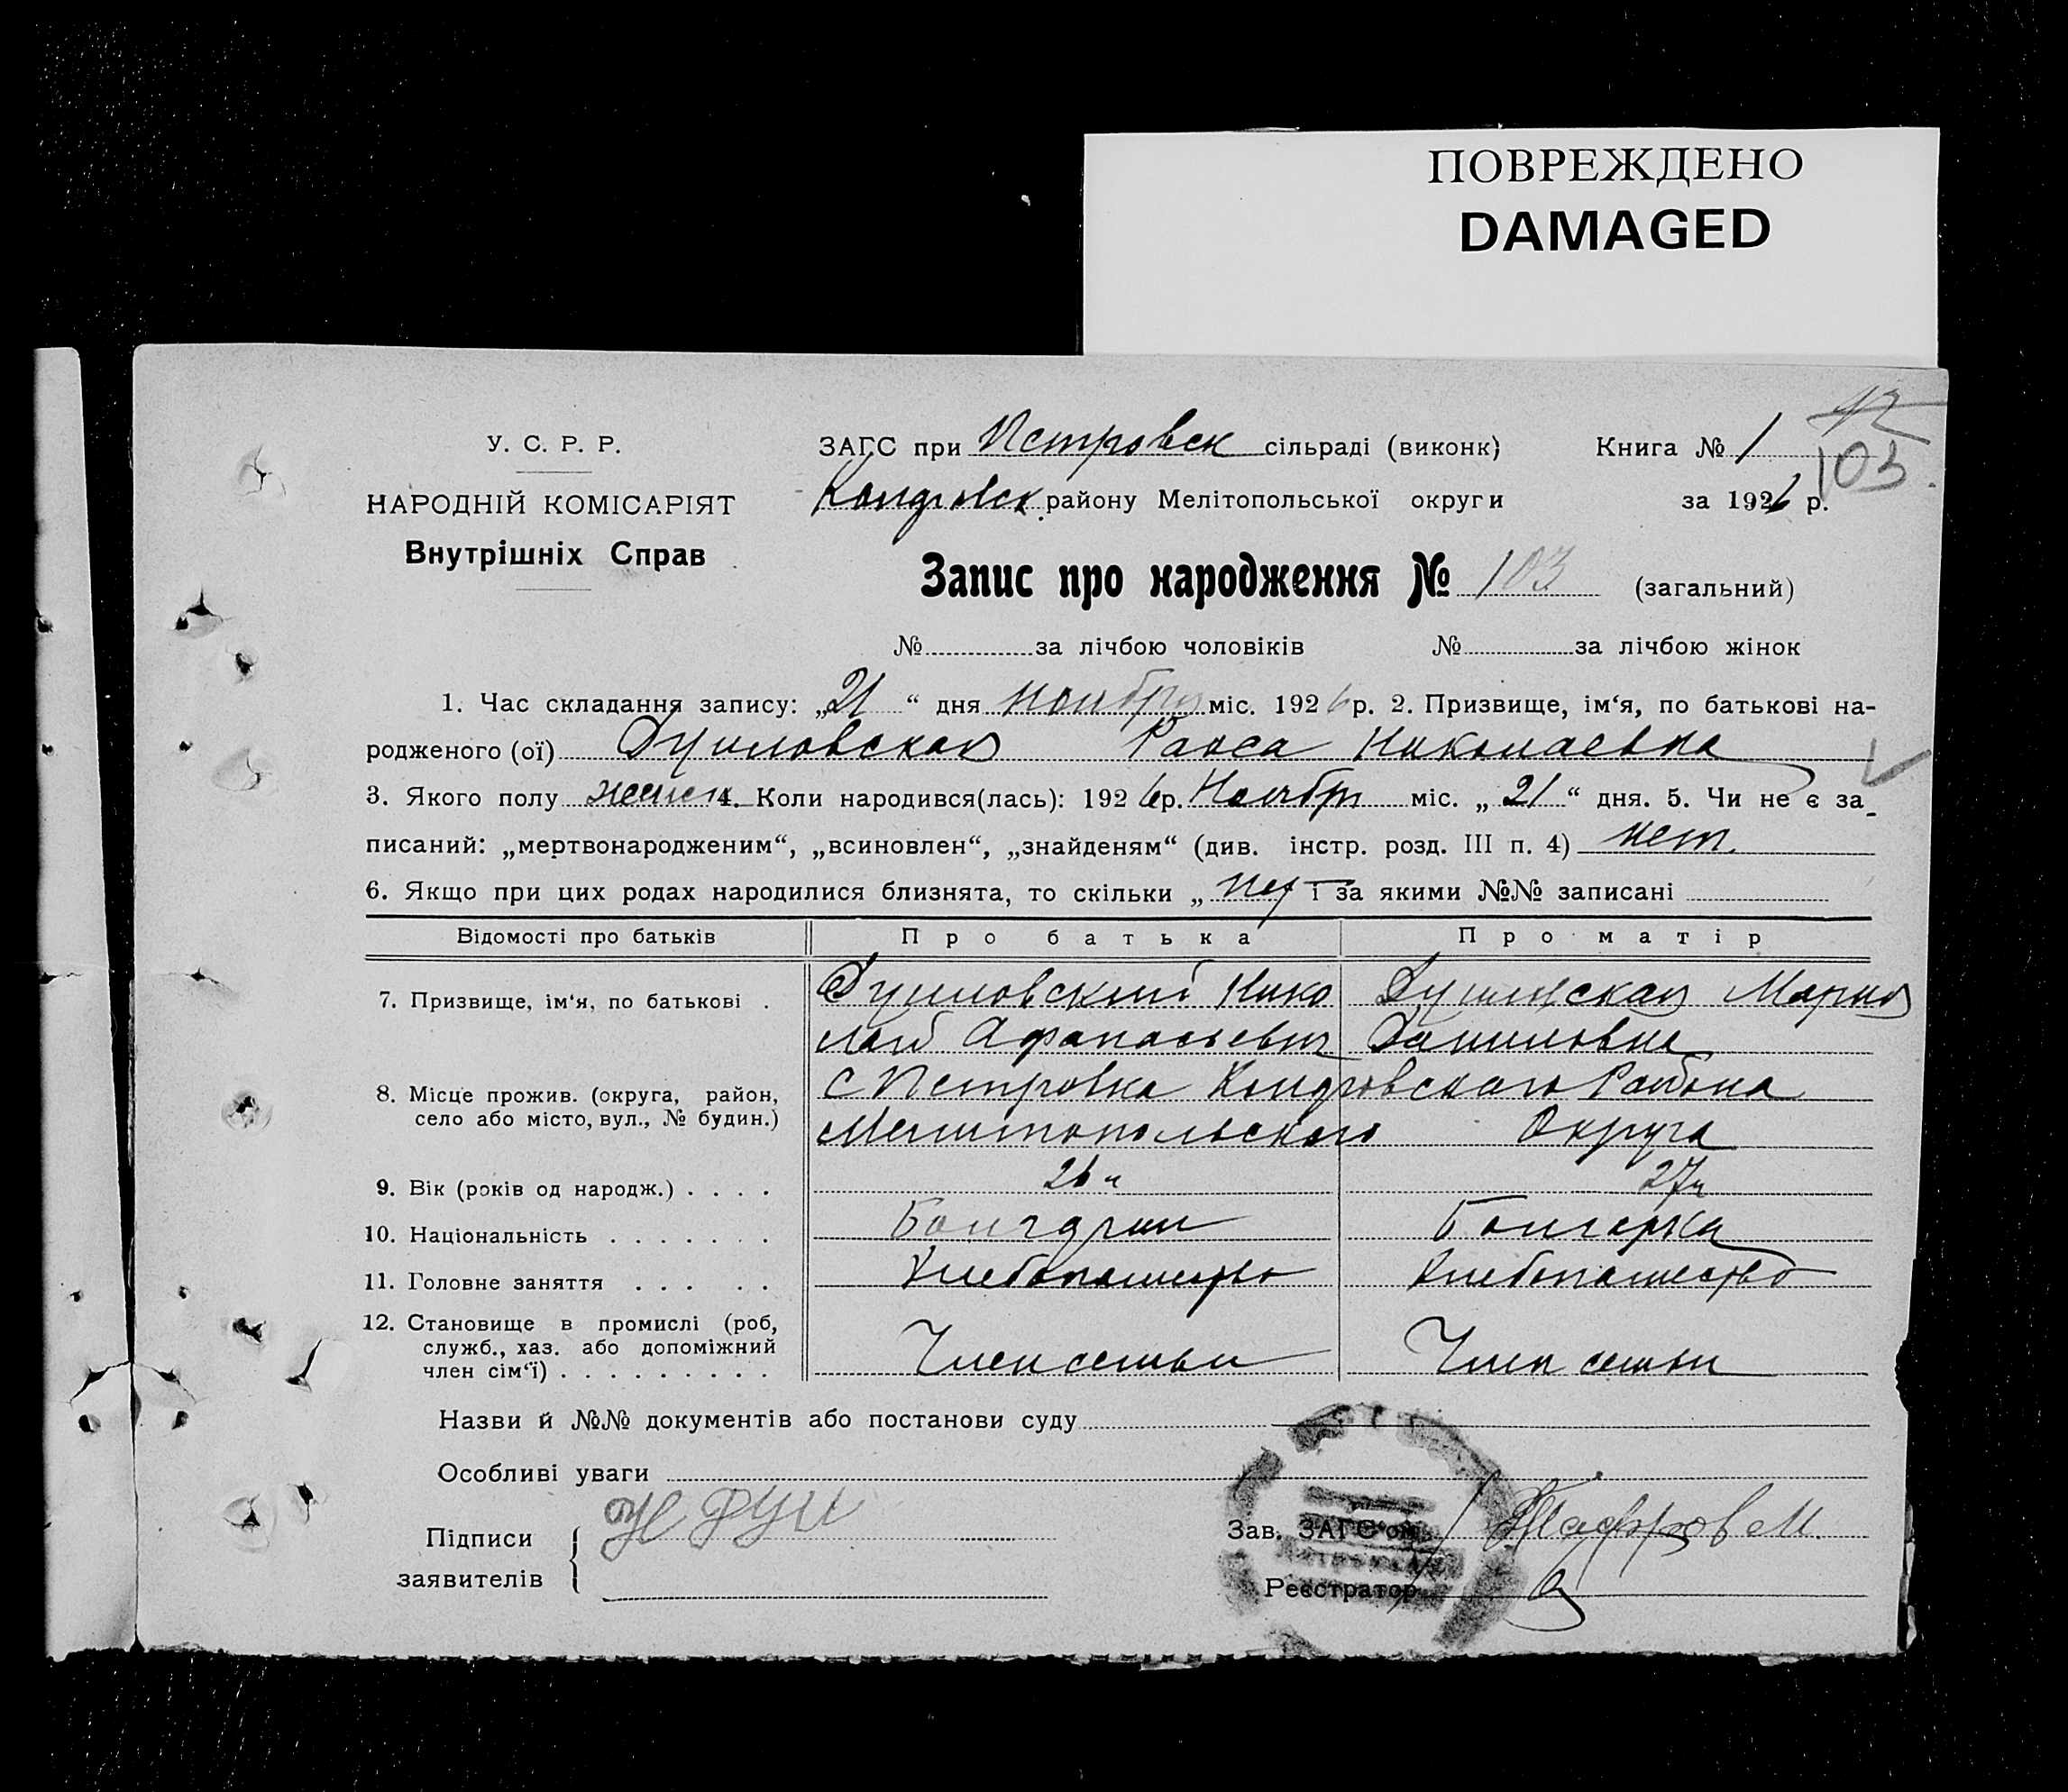 ПОВРЕЖДЕНО
DAMAGED
У. С. Р. Р.
НАРОДНІЙ КОМІСАРІЯТ
Внутрішніх Справ
ЗАГС при Петровск сільраді (виконк)
районy Мелітопольської округи
Книга № 1
103
за 1926 р.
Запис про народження № 103 (загальний)
№ за лічбою чоловіків № за лічбою жінок
1. Час складання запису: „21“ дня ноября міс. 1926 р. 2. Призвище, ім‘я, по батькові на-
родженого (ої) Раиса Николаевна
3. Якого полу женск 4. Коли народився(лась): 1926 р. Ноября міс. „21“ дня. 5. Чи не є за-
писаний: „мертвонародженим“, „всиновлен“, „знайденям“ (див. інстр. розд. III п. 4) нет.
6. Якщо при цих родах народилися близнята, то скільки „ нет і за якими №№ записані
Відомості про батьків Про батька Про матір
7. Призвище, ім‘я, по батькові . Нико Мария
лай Афанасьевич Даниловна
8. Місце прожив. (округа, район, село або місто, вул., № будин.) С Петровка Района
Мелитопольского Округа
9. Вік (років од народж.) . . . . 26 27
10. Національність . . . . . . . Болгарин Болгарка
11. Головне заняття . . . . . Хлебопашество Хлебопашество
12. Становище в промислі (роб, служб., хаз. або допоміжний член сім‘ї) . . . . . . . . . Член семьи Член семьи
Назви й №№ документів або постанови суду
Особливі уваги
Підписи
заявителів
Зав. ЗАГС‘ом
Реєстратор